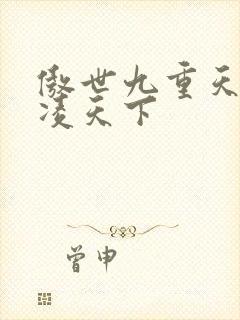 傲世九重天
凌天下
曾申